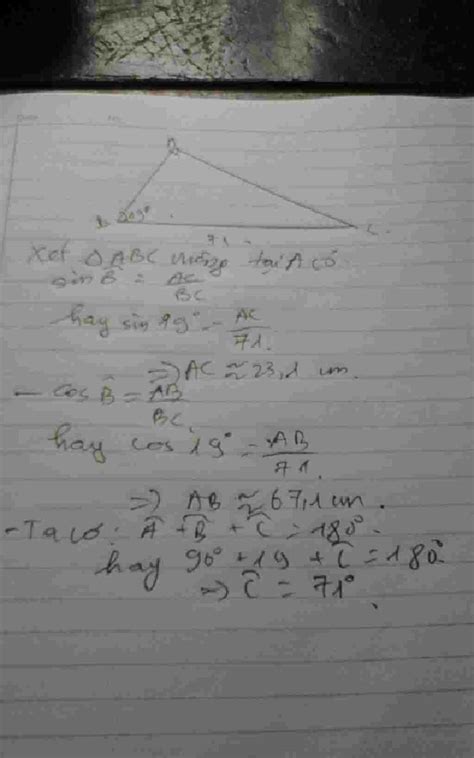 A
B 19°
71
C
Xét △ABC vuông tại A có
sin B̂ = AC/BC
hay sin 19° = AC/71.
=> AC ≈ 23,1 cm.
- cos B̂ = AB/BC.
hay cos 19° = AB/71.
=> AB ≈ 67,1 cm.
- Ta có: Â + B̂ + Ĉ = 180°.
hay 90° + 19 + Ĉ = 180°
=> Ĉ = 71°.